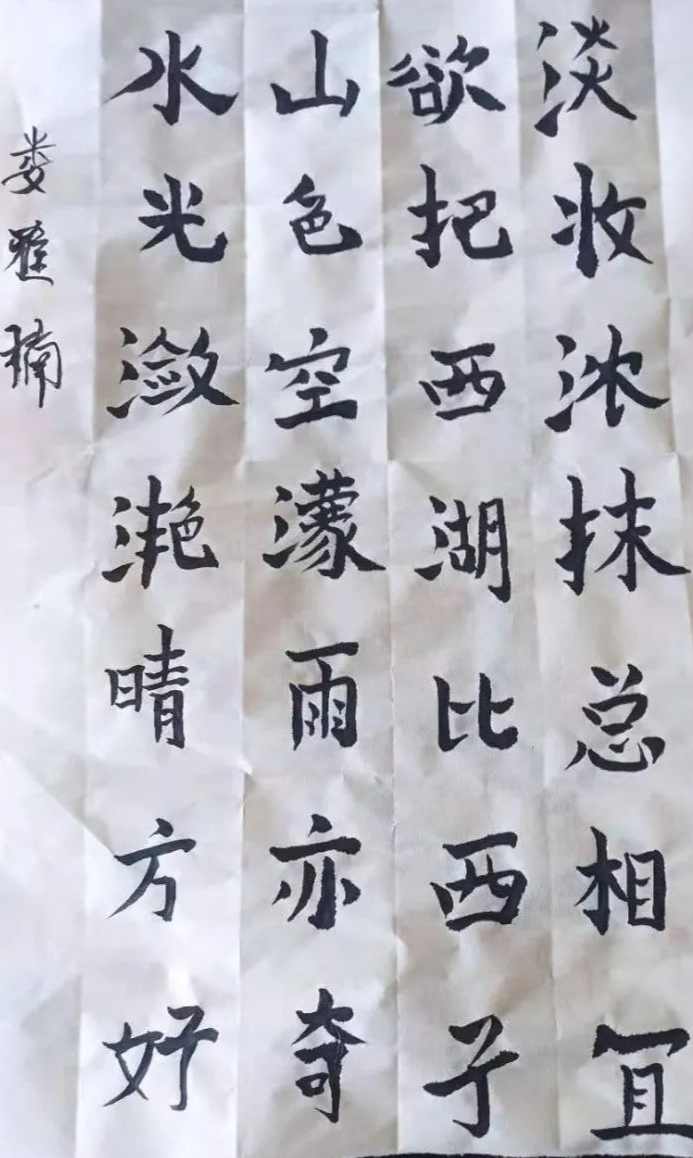 水光潋滟晴方好
山色空濛雨亦奇
欲把西湖比西子
淡妆浓抹总相宜
娄雅楠